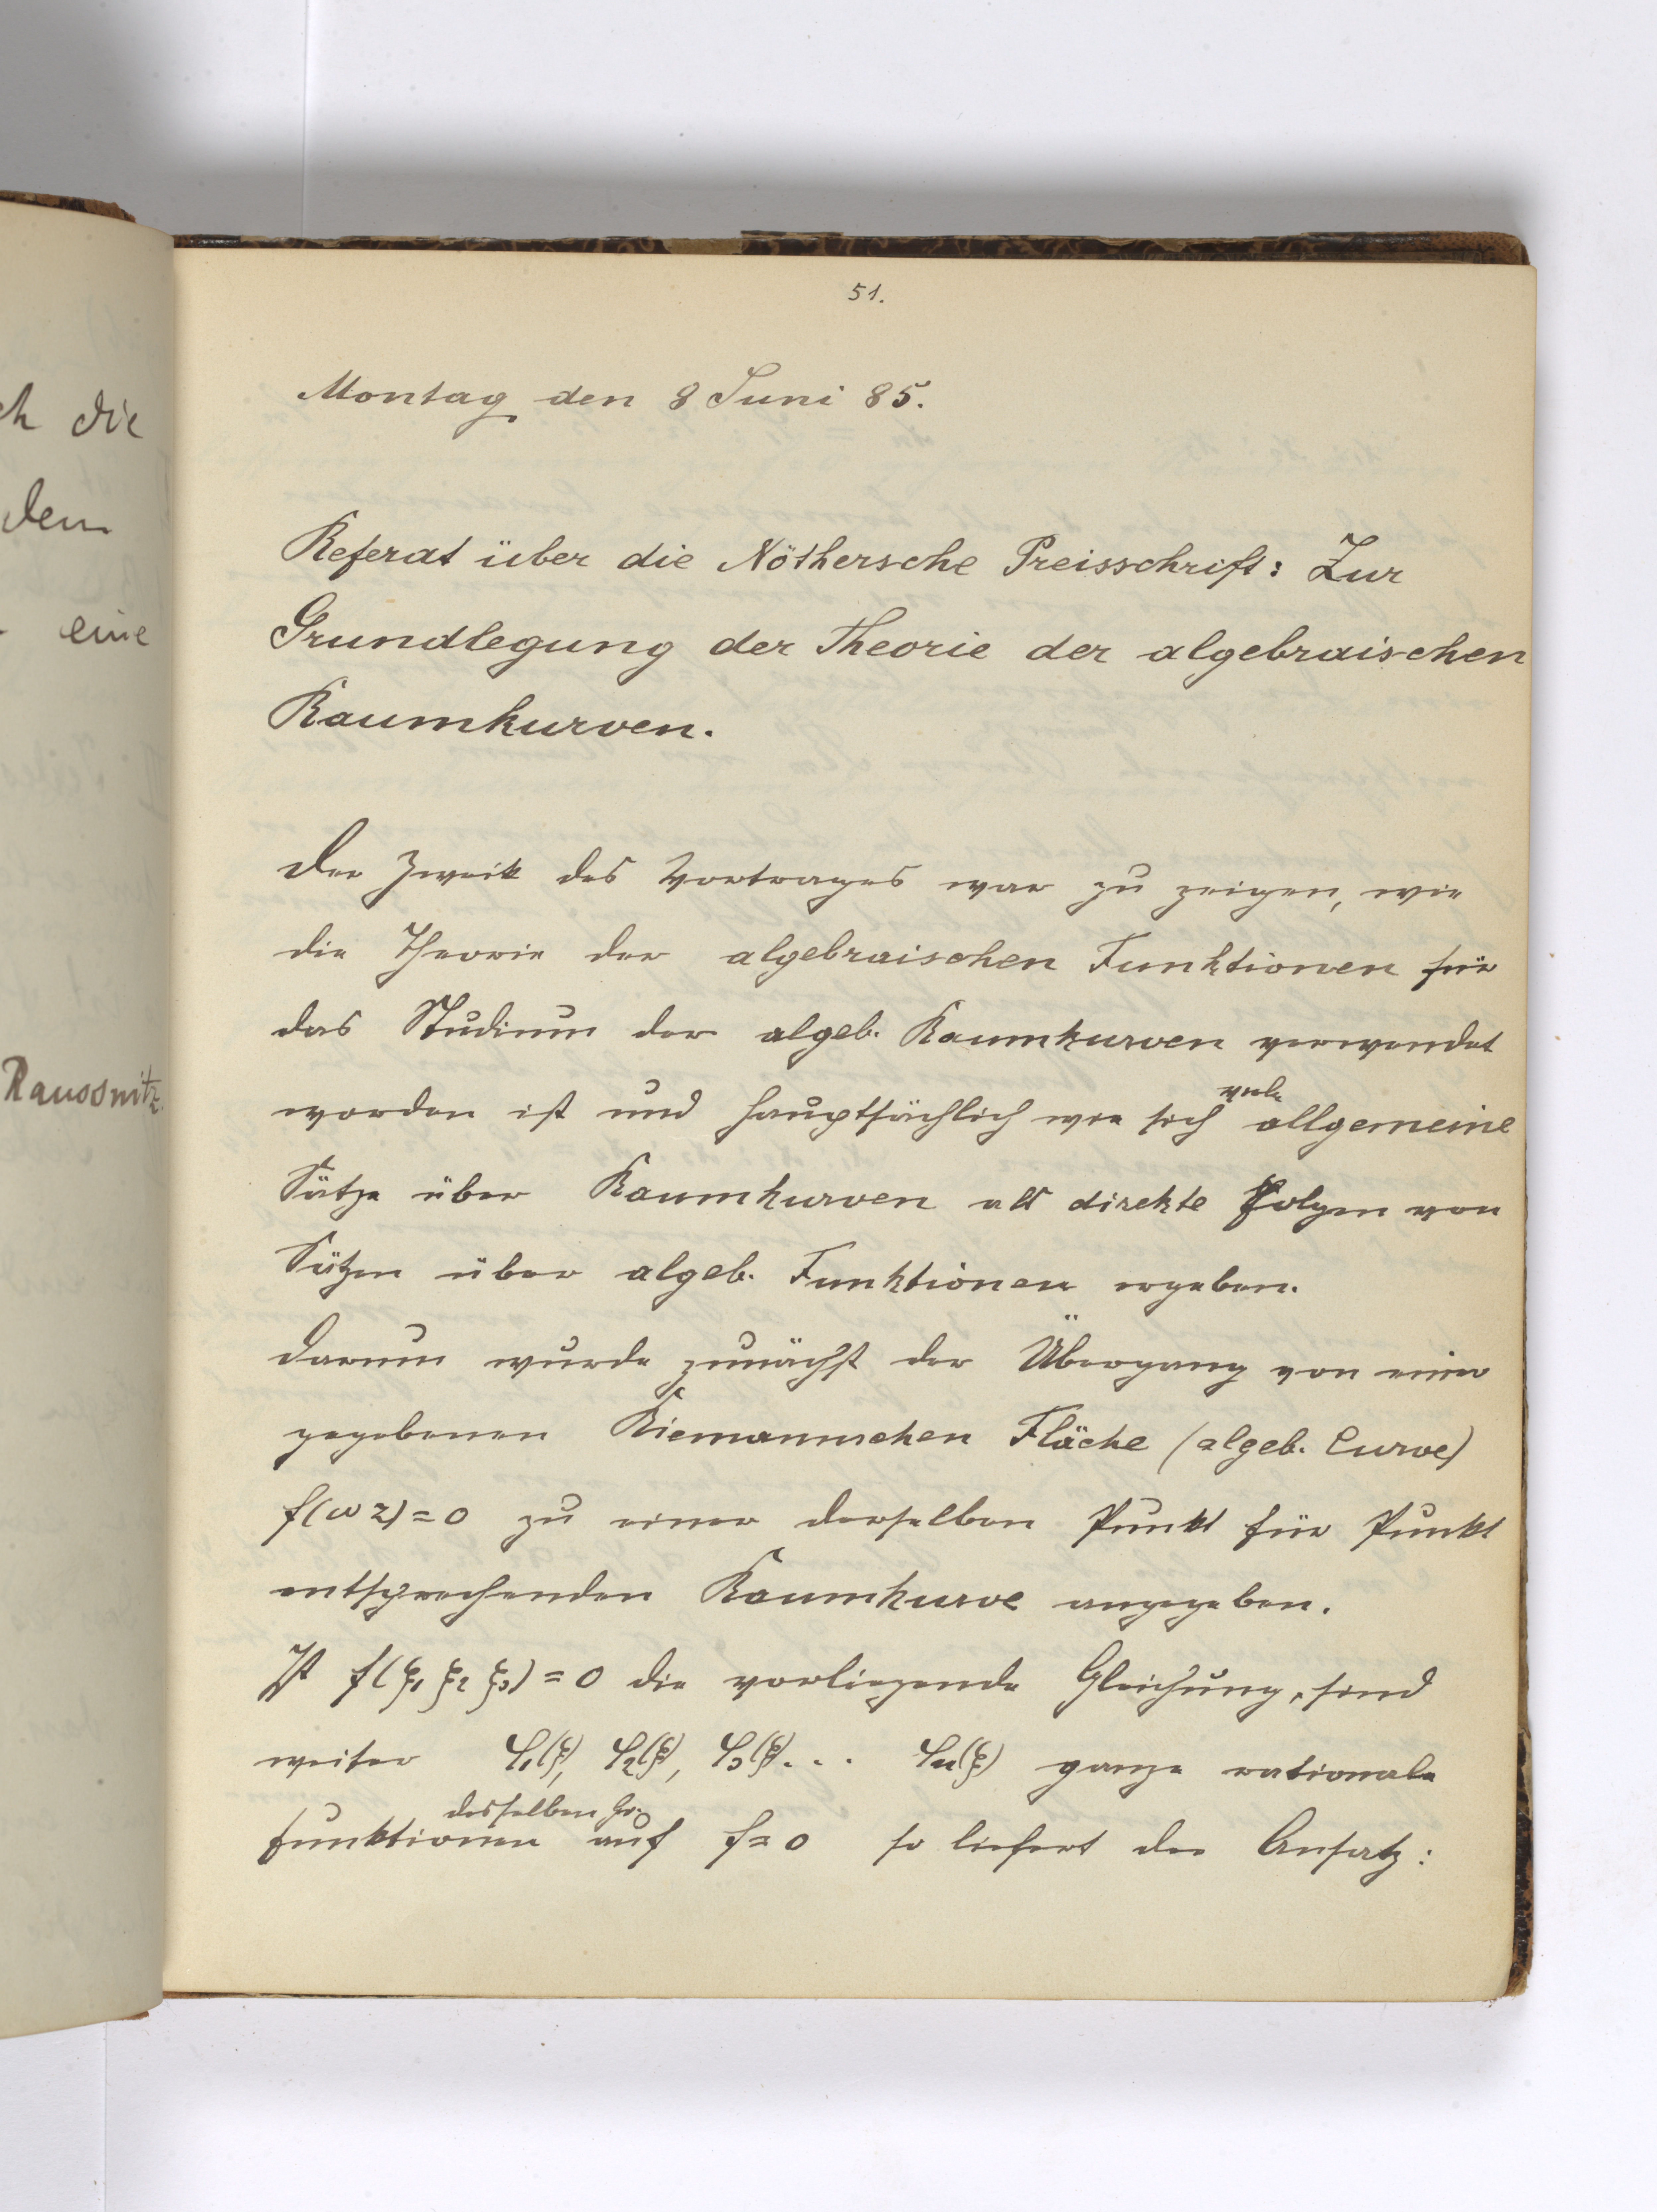 51.
Montag den 8 Juni 85.
Referat über die Nöthersche Preisschrift: Zur
Grundlegung der Theorie der algebraischen
Raumkurven.
Der Zweck des Vortrages war zu zeigen, wie
die Theorie der algebraischen Funktionen für
das Studium der algeb. Raumkurven verwendet
worden ist und hauptsächlich wie sich viele allgemeine
Sätze über Raumkurven als direkte Folgen von
Sätzen über algeb. Funktionen ergeben.
Darum wurde zunächst der Übergang von einer
gegebenen Riemannschen Fläche (algeb. Curve)
f(w z) = 0 zu einer derselben Punkt für Punkt
entsprechenden Raumkurve angegeben.
Ist f(ξ₁ ξ₂ ξ₃) = 0 die vorliegende Gleichung, sind
weiter φ₁(ξ), φ₂(ξ), φ₃(ξ) . . . φₙ(ξ) ganze rationale
Funktionen desselben Gr. auf f = 0 so liefert der Ansatz:
ch die
dem
eine
Raussnitz.